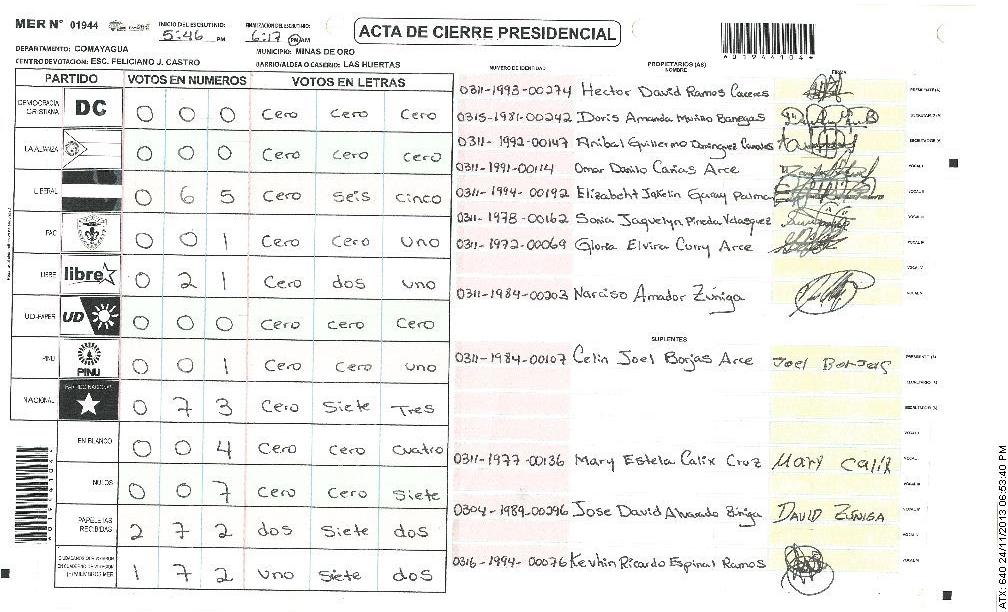 MER N° 01944
INICIO DEL ESCRUTINIO: 5:46 PM
FINALIZACION DEL ESCRUTINIO: 6:17 PM AM
ACTA DE CIERRE PRESIDENCIAL
DEPARTAMENTO: COMAYAGUA
MUNICIPIO: MINAS DE ORO
CENTRO DE VOTACION: ESC. FELICIANO J. CASTRO
BARRIO/ALDEA O CASERIO: LAS HUERTAS
PARTIDO VOTOS EN NUMEROS VOTOS EN LETRAS
DEMOCRACIA CRISTIANA DC 0 0 0 Cero Cero Cero
LA ALIANZA 0 0 0 Cero Cero Cero
LIBERAL 0 6 5 Cero Seis cinco
PAC 0 0 1 Cero Cero uno
LIBRE libre 0 2 1 Cero dos uno
UD-FAPER UD 0 0 0 Cero Cero Cero
PINU PINU 0 0 1 Cero Cero uno
NACIONAL PARTIDO NACIONAL 0 7 3 Cero Siete Tres
EN BLANCO 0 0 4 Cero Cero Cuatro
NULOS 0 0 7 Cero Cero Siete
PAPELETAS RECIBIDAS 2 7 2 dos Siete dos
CIUDADANOS QUE VOTARON EN CUADERNO DE VOTACION (+) MIEMBROS MER 1 7 2 uno Siete dos
NUMERO DE IDENTIDAD PROPIETARIOS (AS) NOMBRE FIRMA
0311-1993-00274 Hector David Ramos Caceres
0315-1981-00242 Doris Amanda Murino Banegas
0311-1992-00147 Anibal Guillermo Dominguez Canales
0311-1991-00114 Omar Danilo Cañas Arce
0311-1994-00192 Elizabeht Jakelin Garay Palma
0311-1978-00162 Sonia Jaquelyn Pineda Velasquez
0311-1972-00069 Gloria Elvira Curry Arce
0311-1984-00203 Narciso Amador Zuniga
SUPLENTES
0311-1984-00107 Celin Joel Borjas Arce Joel Borjas
0311-1977-00136 Mary Estela Calix Cruz Mary Calix
0304-1989-00296 Jose David Alvarado DAVID ZUNIGA
0316-1994-00076 Kevhin Ricardo Espinal Ramos
ATX: 640 24/11/2013 06:53:40 PM